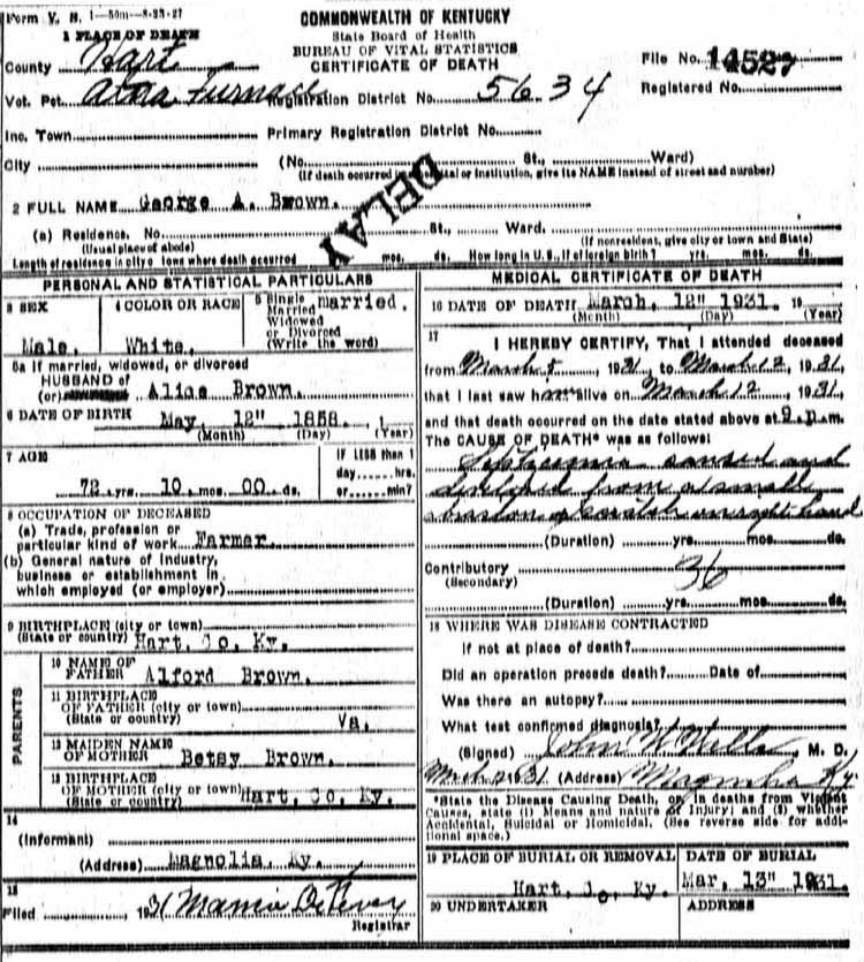 Form V. S. 1—50m—8-23-27
COMMONWEALTH OF KENTUCKY
State Board of Health
BUREAU OF VITAL STATISTICS
CERTIFICATE OF DEATH
1 PLACE OF DEATH
County Hart
File No. 14527
Vot. Pct. Furnace Registration District No. 5634
Registered No.
Inc. Town Primary Registration District No.
City (No. St., Ward)
(If death occurred in hospital or institution, give its NAME instead of street and number)
DELAY
2 FULL NAME George A. Brown.
(a) Residence. No. St., Ward.
(Usual place of abode) (If nonresident, give city or town and State)
Length of residence in city or town where death occurred mos. ds. How long in U. S., if of foreign birth? yrs. mos. ds.
PERSONAL AND STATISTICAL PARTICULARS
3 SEX
Male.
4 COLOR OR RACE
White.
5 Single married.
Married
Widowed
or Divorced
(Write the word)
5a If married, widowed, or divorced
HUSBAND of
(or) Alice Brown.
6 DATE OF BIRTH May, 12" 1858. 1
(Month) (Day) (Year)
7 AGE
72 yrs. 10 mos. 00 ds.
IF LESS than 1
day hrs.
or min?
8 OCCUPATION OF DECEASED
(a) Trade, profession or
particular kind of work Farmer.
(b) General nature of industry,
business or establishment in
which employed (or employer)
9 BIRTHPLACE (city or town)
(State or country) Hart, Co, Ky.
PARENTS
10 NAME OF
FATHER Alford Brown.
11 BIRTHPLACE
OF FATHER (city or town)
(State or country) Va.
12 MAIDEN NAME
OF MOTHER Betsy Brown.
13 BIRTHPLACE
OF MOTHER (city or town)
(State or country) Hart, Co, Ky.
14
(Informant)
(Address) Magnolia, Ky.
15
Filed , 1931 Mamie
Registrar
MEDICAL CERTIFICATE OF DEATH
16 DATE OF DEATH March, 12" 1931. 19
(Month) (Day) (Year)
17
I HEREBY CERTIFY, That I attended deceased
from March 5, 1931, to March 12, 1931,
that I last saw him alive on March 12, 1931,
and that death occurred on the date stated above at 9 p.m.
The CAUSE OF DEATH* was as follows:
Septicemia caused and
developed from a small
abrasion or scratch on right hand
(Duration) yrs. mos. ds.
Contributory 36
(Secondary)
(Duration) yrs. mos. ds.
18 WHERE WAS DISEASE CONTRACTED
If not at place of death?
Did an operation precede death? Date of
Was there an autopsy?
What test confirmed diagnosis?
(Signed) John W , M. D.
1931 (Address) Magnolia Ky
*State the Disease Causing Death, or, in deaths from Violent
Causes, state (1) Means and nature of Injury; and (2) whether
Accidental, Suicidal or Homicidal. (See reverse side for addi-
tional space.)
19 PLACE OF BURIAL OR REMOVAL
Hart, Co, Ky.
DATE OF BURIAL
Mar, 13" 1931.
20 UNDERTAKER
ADDRESS